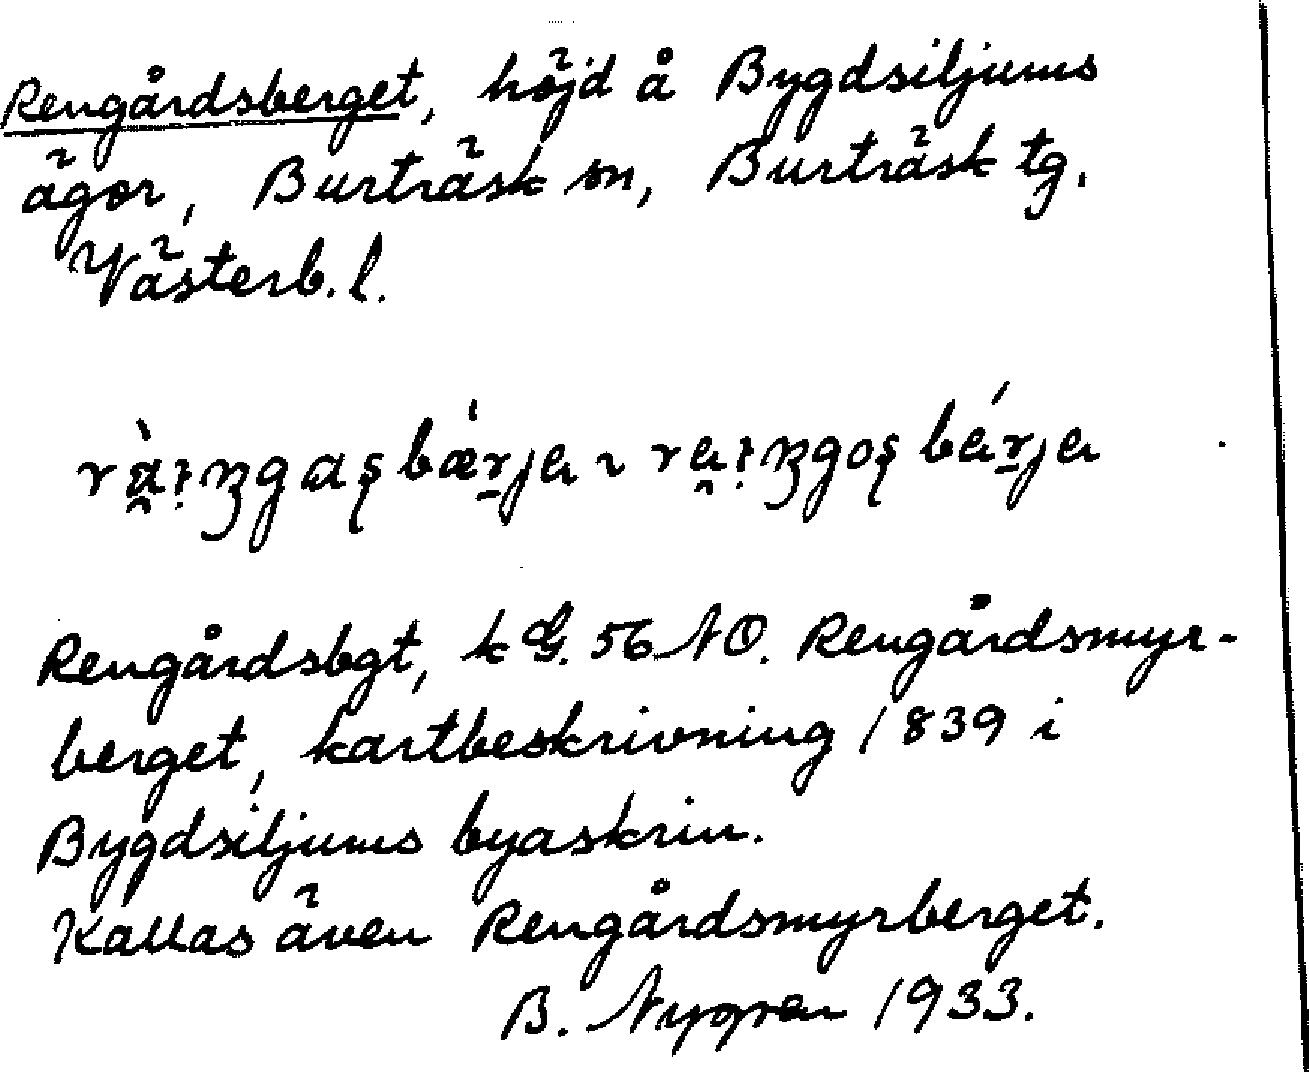 Rengårdsberget, höjd å Bygdsiljums
ägor, Burträsk sn, Burträsk tg.
Västerb. l.
Rengårdsbgt, k G. 56 NO. Rengårdsmyr-
berget, kartbeskrivning 1839 i
Bygdsiljums byaskrin.
Kallas även Rengårdsmyrberget.
B. Nygren 1933.